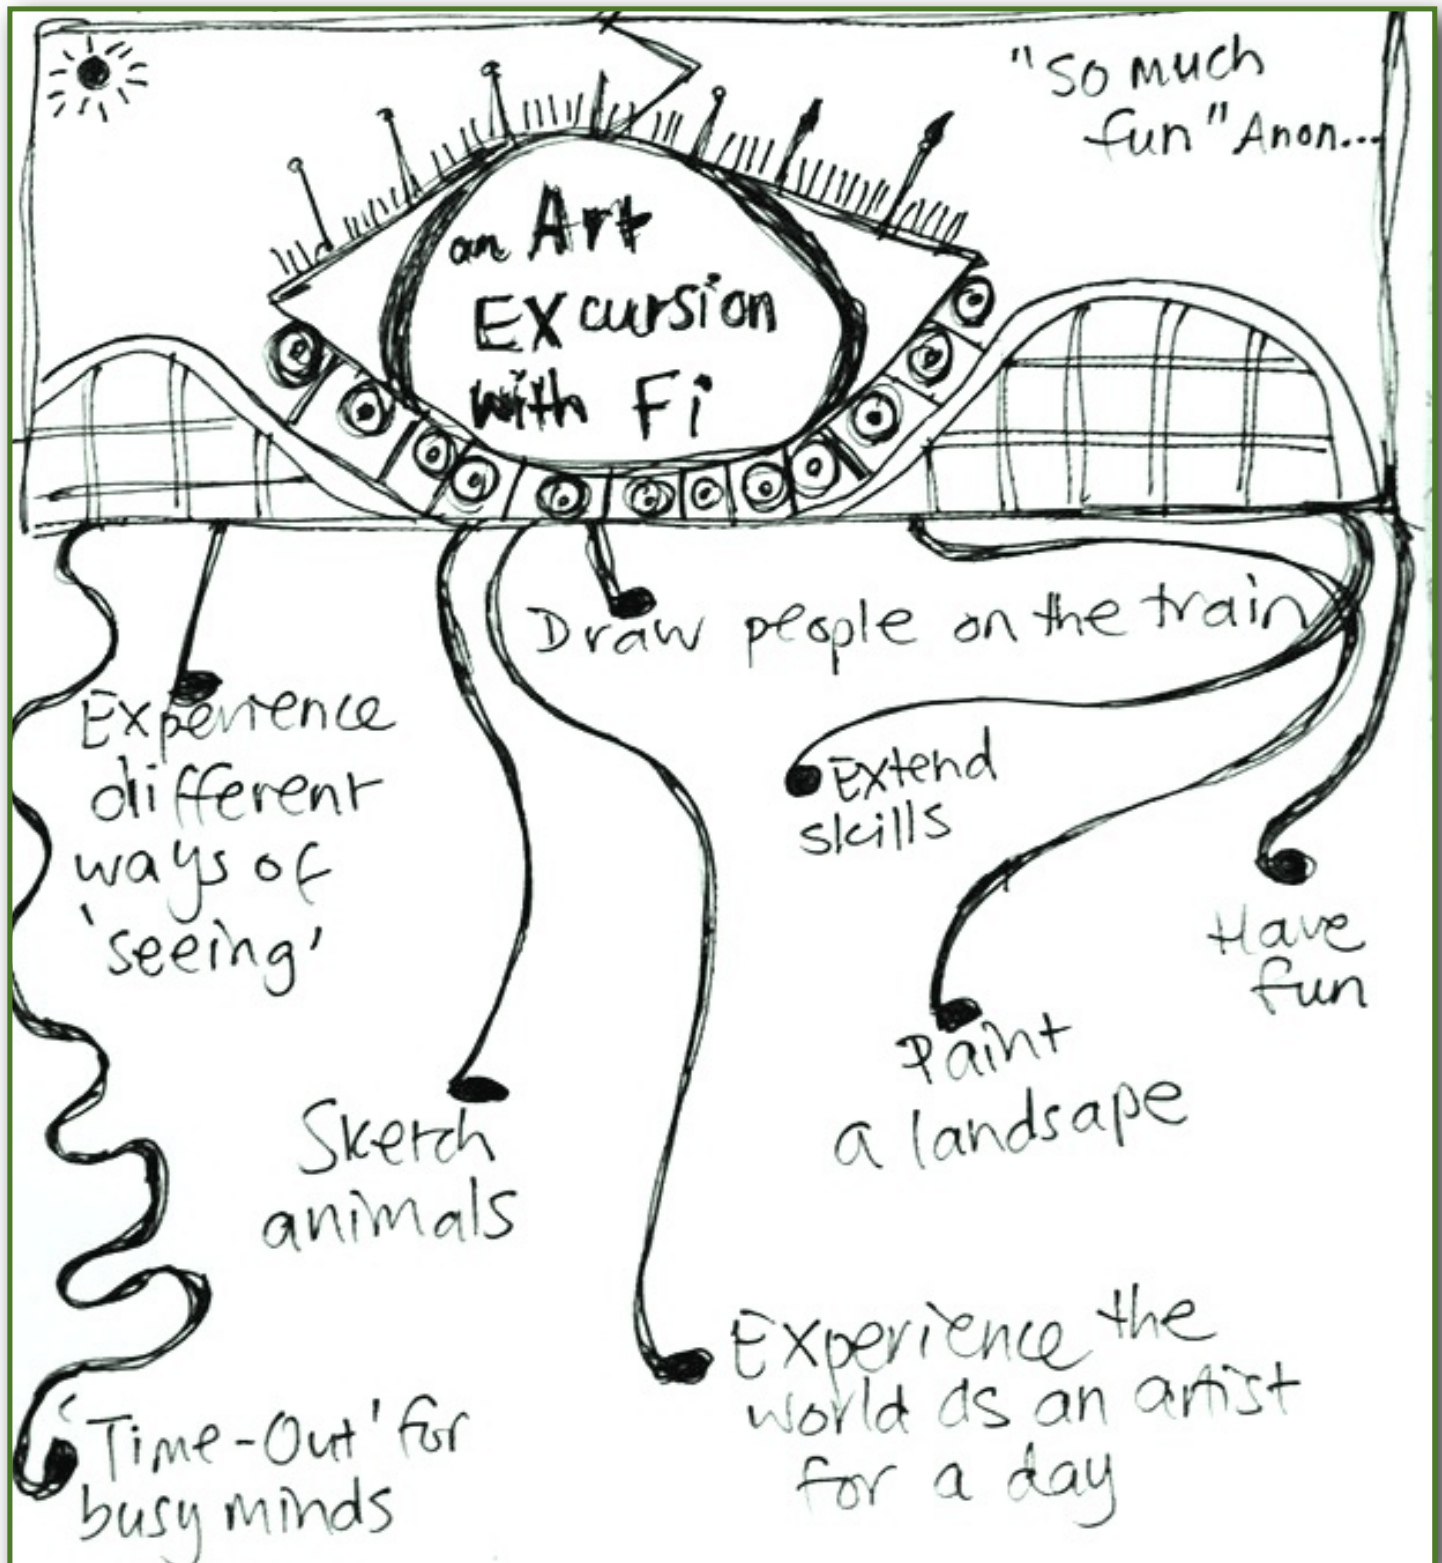 "So much
fun" Anon...
an Art
Excursion
with Fi
Draw people on the train
Experience
different
ways of
'seeing'
Extend
skills
Have
fun
Paint
a landsape
Sketch
animals
Experience the
world as an artist
for a day
'Time-Out' for
busy minds